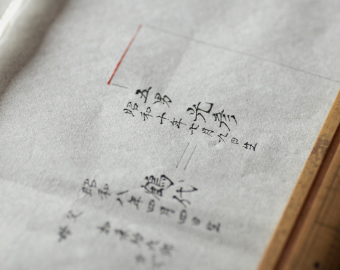 五男 光彦
昭和十年七月九日生
鶴代
昭和八年四月四日生